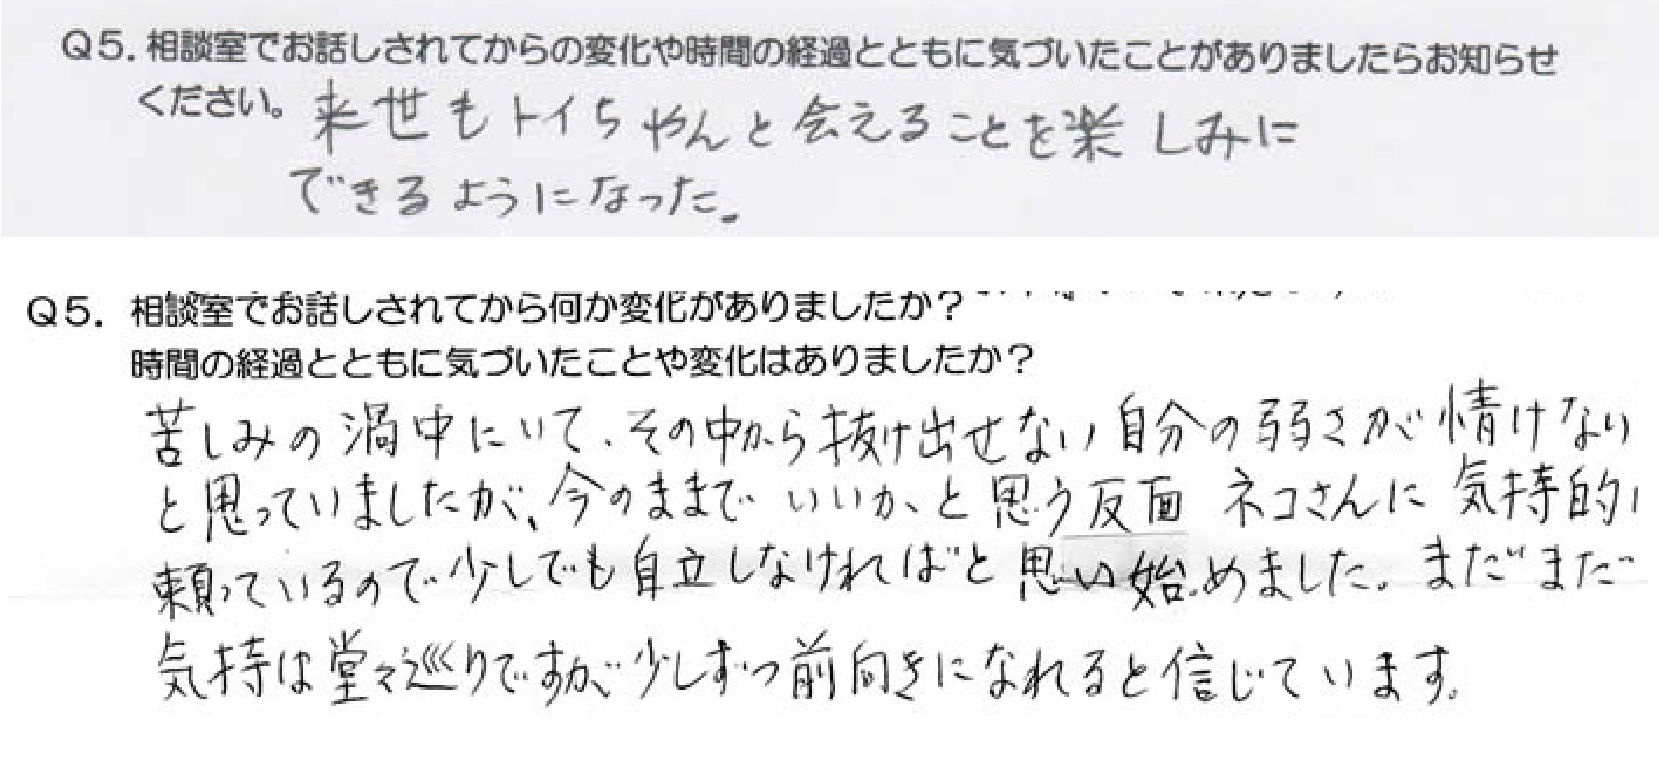 Q5. 相談室でお話しされてからの変化や時間の経過とともに気づいたことがありましたらお知らせ
ください。来世もトイちゃんと会えることを楽しみに
できるようになった。
Q5. 相談室でお話しされてから何か変化がありましたか？
時間の経過とともに気づいたことや変化はありましたか？
苦しみの渦中にいて、その中から抜け出せない自分の弱さが情けない
と思っていましたが、今のままでいいか、と思う反面 ネコさんに気持的に
頼っているので少しでも自立しなければと思い始めました。まだまだ
気持は堂々巡りですが少しずつ前向きになれると信じています。